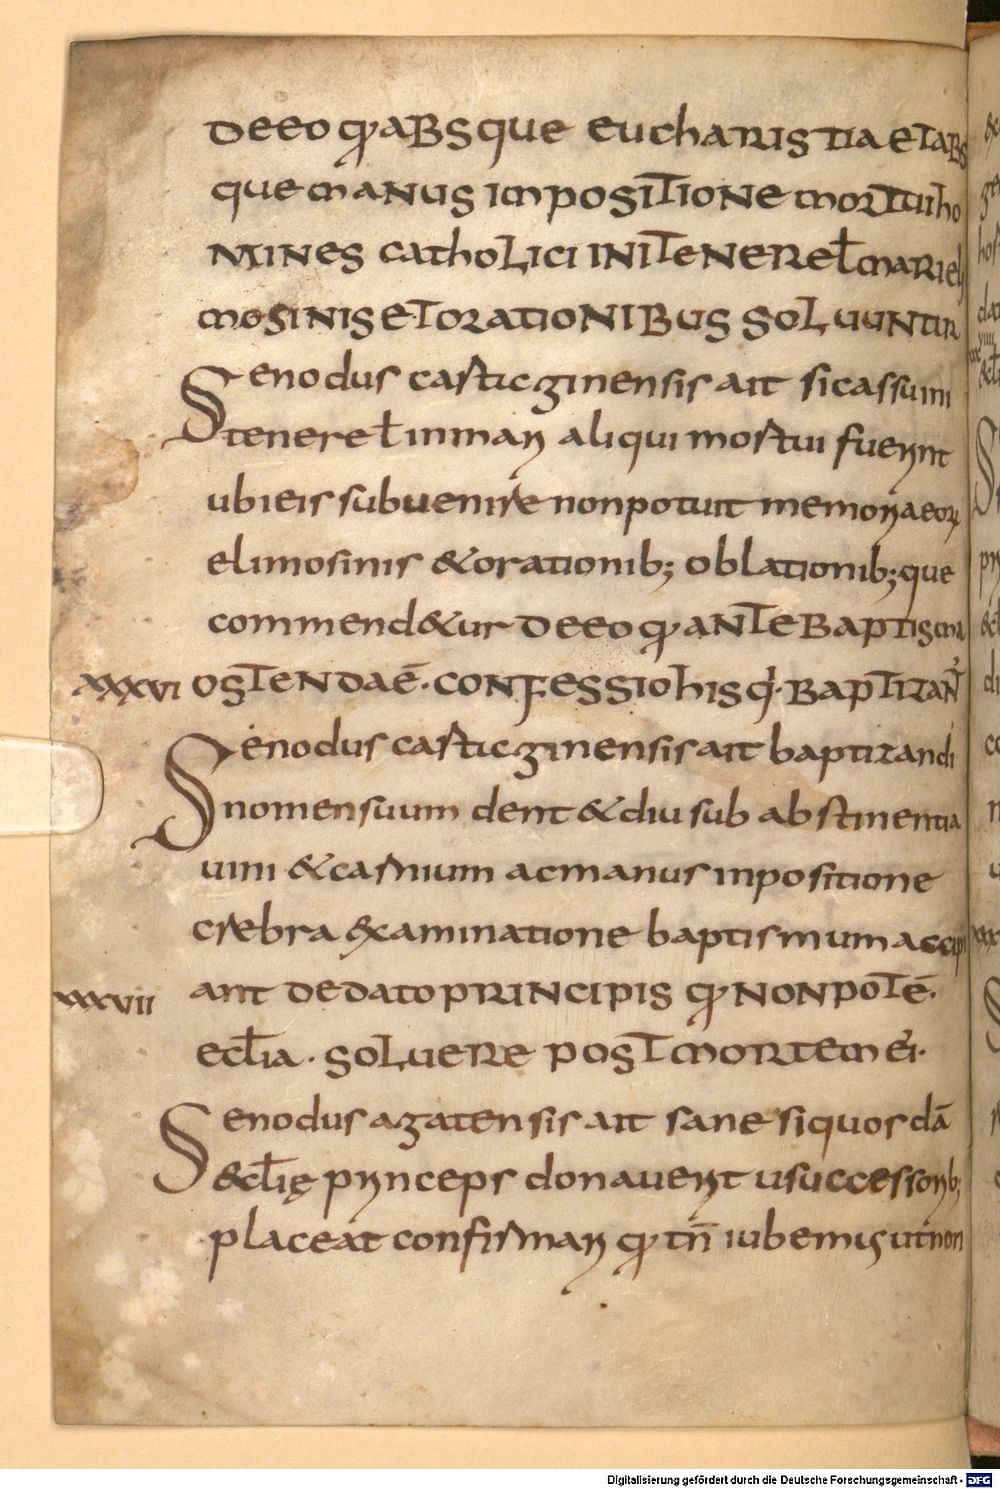 DE EO q̄ ABSQUE EUCHARISTIA ET ABS
QUE MANUS IMPOSITIONE MORTUI HO
MINES CATHOLICI IN ITENERE ł MARI ELY
MOSINIS ET ORATIONIBUS SOLUUNTUR
Senodus casticginensis ait sicas sumi
tenere ł in mari aliqui mortui fuerint
ubi eis subuenire non potuit memoria eorum
elimosinis & orationib; oblationib;que
commend&ur DE EO q̄ ANTE BAPTISMA
xxxvi OSTENDA Ē· CONFESSIO HIS q̇· BAPTIZANT̄
Senodus casticginensis ait baptizandi
nomen suum dent & diu sub abstinentia
uini & carnium ac manus inpositione
crebra &xaminatione baptismum accipi
xxxvii ant DE DATO PRINCIPIS q̄ NON POTĒ·
ECŁIA· SOLUERE POST MORTEM EI·
Senodus agatensis ait sane si quos dā
&cłię princeps donauerit ut successorib;
placeat confirmari q̄ tn̄ iubemus ut non
Digitalisierung gefördert durch die Deutsche Forschungsgemeinschaft - DFG